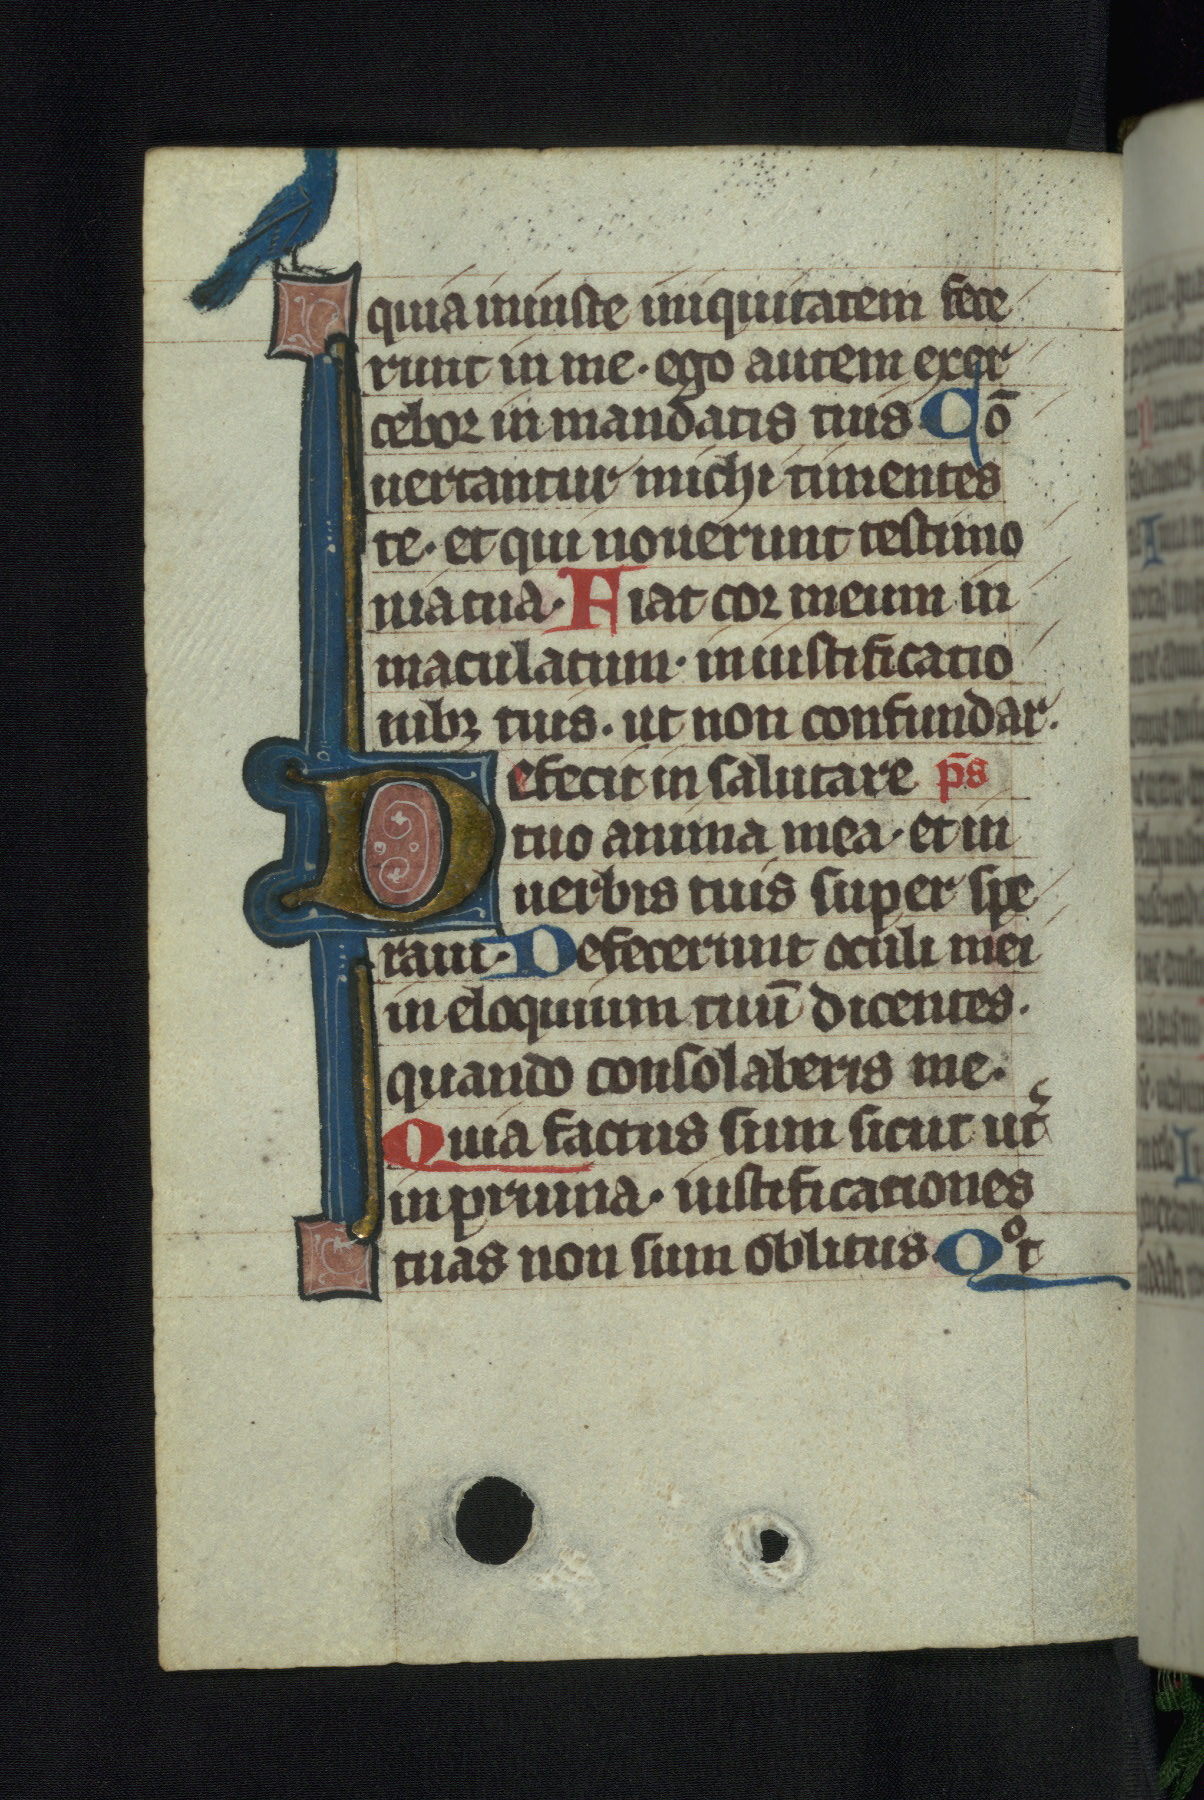 quia iniuste iniquitatem fece
runt in me · ego autem exer
cebor in mandatis tuis Cō
uertantur michi timentes
te · et qui nouerunt testimo
nia tua · Fiat cor meum in
maculatum · in iustificatio
nibꝫ tuis · ut non confundar .
Defecit in salutare p̄s
tuo anima mea · et in
uerbis tuis super spe
raui · Defecerunt oculi mei
in eloquium tuū dicentes .
quando consolaberis me .
Quia factus sum sicut ut᷑
in pruina · iustificationes
tuas non sum oblitus Qͦt